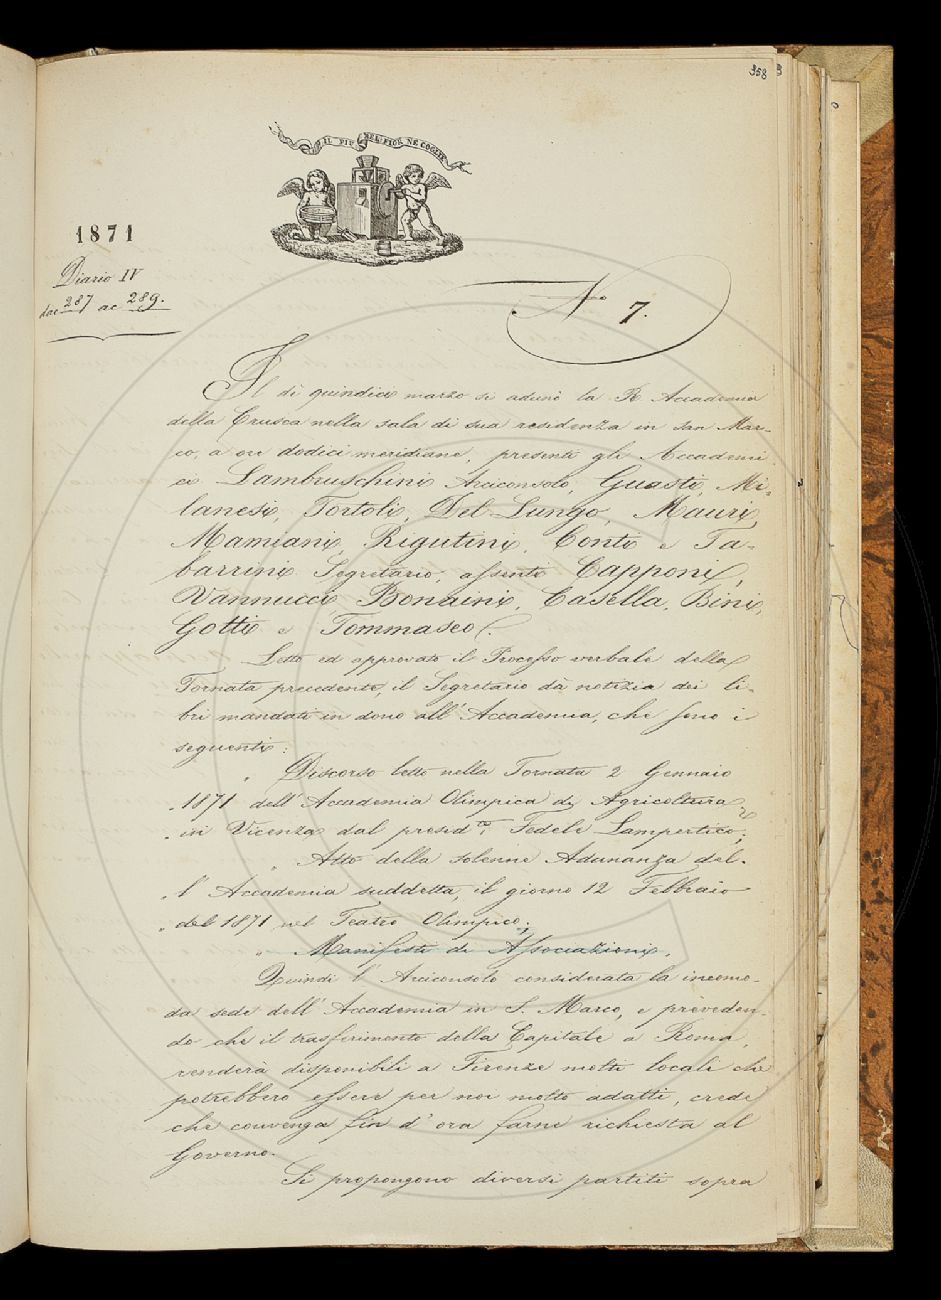 358
IL PIU BEL FIOR NE COGLIE
1871
Diario IV
da c 287 a c 289.
N.o 7.
Il dì quindici marzo si adunò la R. Accademia
della Crusca nella sala di sua residenza in San Mar-
co, a ore dodici meridiane, presenti gli Accademi
ci Lambruschini Arciconsolo, Guasti, Mi-
lanesi, Tortoli, Del Lungo, Mauri,
Mamiani, Rigutini, Conti e Ta-
barrini Segretario; assenti Capponi,
Vannucci Bonaini, Casella, Bini,
Gotti e Tommaseo.
Letto ed approvato il Processo verbale della
Tornata precedente, il Segretario dà notizia dei li-
bri mandati in dono all'Accademia, che sono i
seguenti:
" Discorso letto nella Tornata 2 Gennaio
" 1871 dell'Accademia Olimpica di Agricoltura
" in Vicenza dal presid.te Fedele Lampertico;
" Atto della solenne Adunanza del-
" l'Accademia suddetta, il giorno 12 Febbraio
" del 1871 nel Teatro Olimpico;
" Manifesti di Associazioni.
Quindi l'Arciconsolo considerata la incomo-
da sede dell'Accademia in S. Marco, e preveden-
do che il trasferimento della Capitale a Roma,
renderà disponibili a Firenze molti locali che
potrebbero essere per noi molto adatti, crede
che convenga fin d'ora farne richiesta al
Governo.
Si propongono diversi partiti sopra